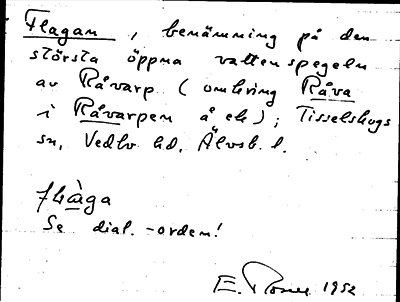 Flagan, benämning på den
största öppna vattenspegeln
av Råvarp (omkring Råva
i Råvarpen å ek); Tisselskogs
sn, Vedbo hd. Älvsb. l.
flàga
Se dial.-orden!
E. 1952